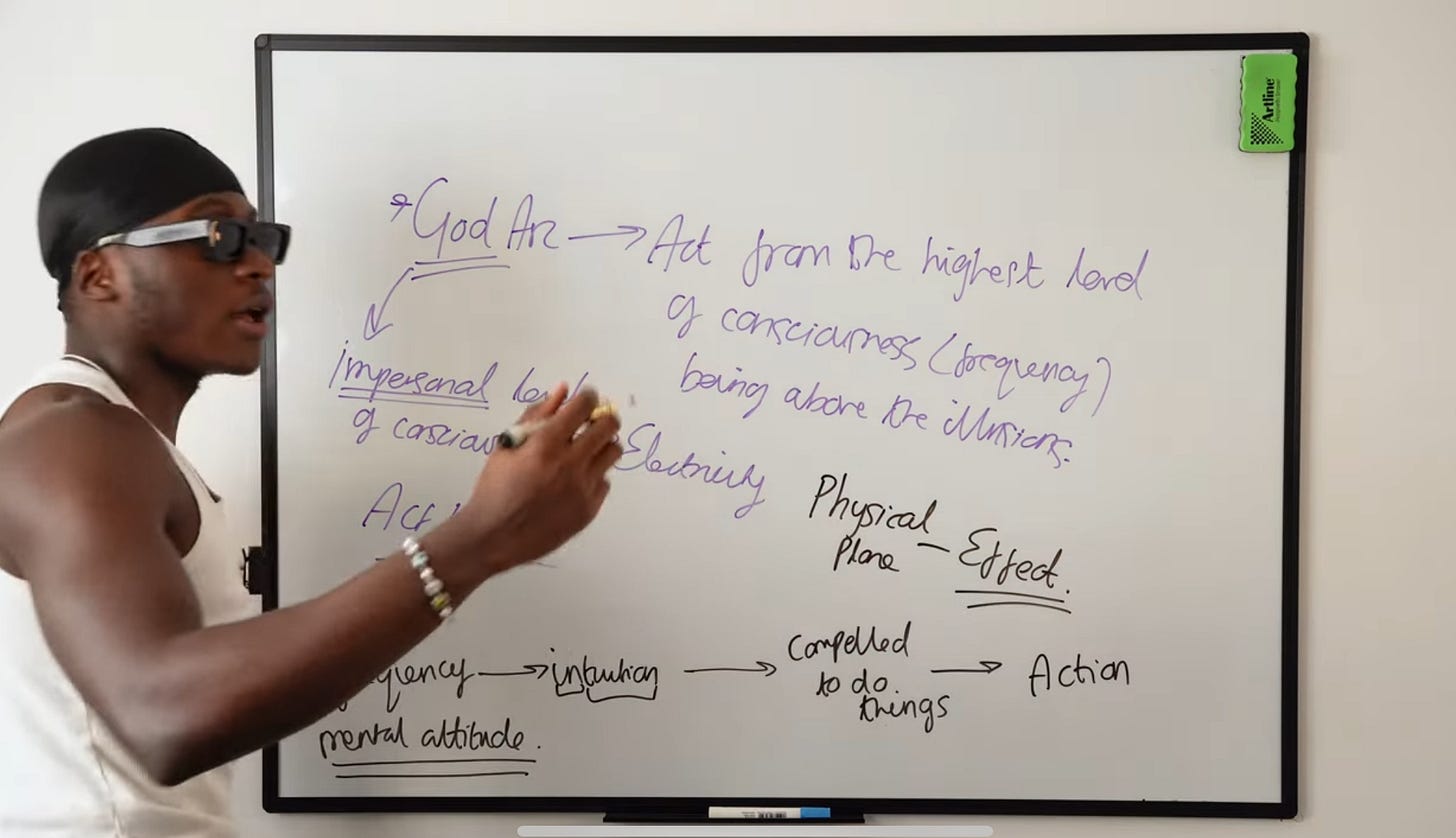 God Arc → Act from the highest level
of consciousness (frequency)
being above the illusions.
Impersonal
of
Electricity
Act
Physical
Plane — Effect.
→ intuition → compelled
to do.
things
→ Action
mental attitude.
Artline